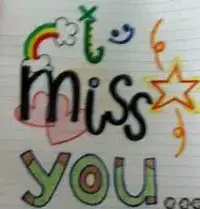 i
miss
you...